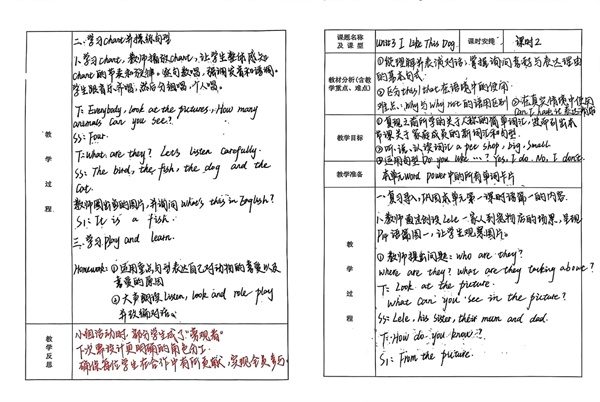 教学过程
二.学习chant并操练句型
1.学习chant,教师播放chant,让学生整体感知
chant的节奏和韵律。逐句教唱,强调发音和语调。
学生跟音乐齐唱,然后分组唱,个人唱。
T: Everybody, look at the pictures, How many
animals can you see?
SS: Four.
T: What are they? Let's listen carefully.
SS: The bird, the fish, the dog and the
Cat.
教师圈出鱼的图片,并询问 What's this in English?
S1: It is a fish.
三.学习 play and learn.
Homework: ①运用重点句型表达自己对动物的喜爱以及
喜爱的原因
②大声朗读Listen, look and role play
并改编对话。
教学反思
小组活动时,部分学生成了"旁观者"
下次需设计更明确的角色分工,
确保每位学生在合作中有所贡献,实现全员参与。
课题名称及课型
Unit 3 I Like This Dog.
课时安排
课时2
教材分析(含教学重点、难点)
①能理解并表演对话,掌握询问喜好与表达理由
的基本句式
②区分this/that在语境中的使用
难点:Why与Why not的语用区别 ②在真实情境中使用
教学目标
①复现之前所学的关于人称的简单词汇,进而引出本
节课关于家庭成员的新词汇和句型。
②听、说、认读词汇 a pet shop, big, small
③运用句型Do you like …? Yes, I do. No, I don't.
教学准备
本单元 Word power中的所有单词卡片
教学过程
一.复习导入,巩固本单元第一课时语篇一的内容.
1.教师通过创设Lele一家人到宠物店的场景,呈现
P19语篇图一,让学生观察图片。
①教师提出问题: who are they?
where are they? what are they talking about?
T: Look at the picture.
What can you see in the picture?
SS: Lele, his sister, their mum and dad.
T: How do you know?
S1: From the picture.